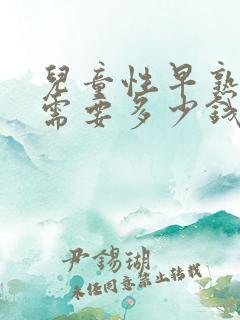 兒童性早熟
需要多少錢
尹錫瑚
未经同意禁止转载